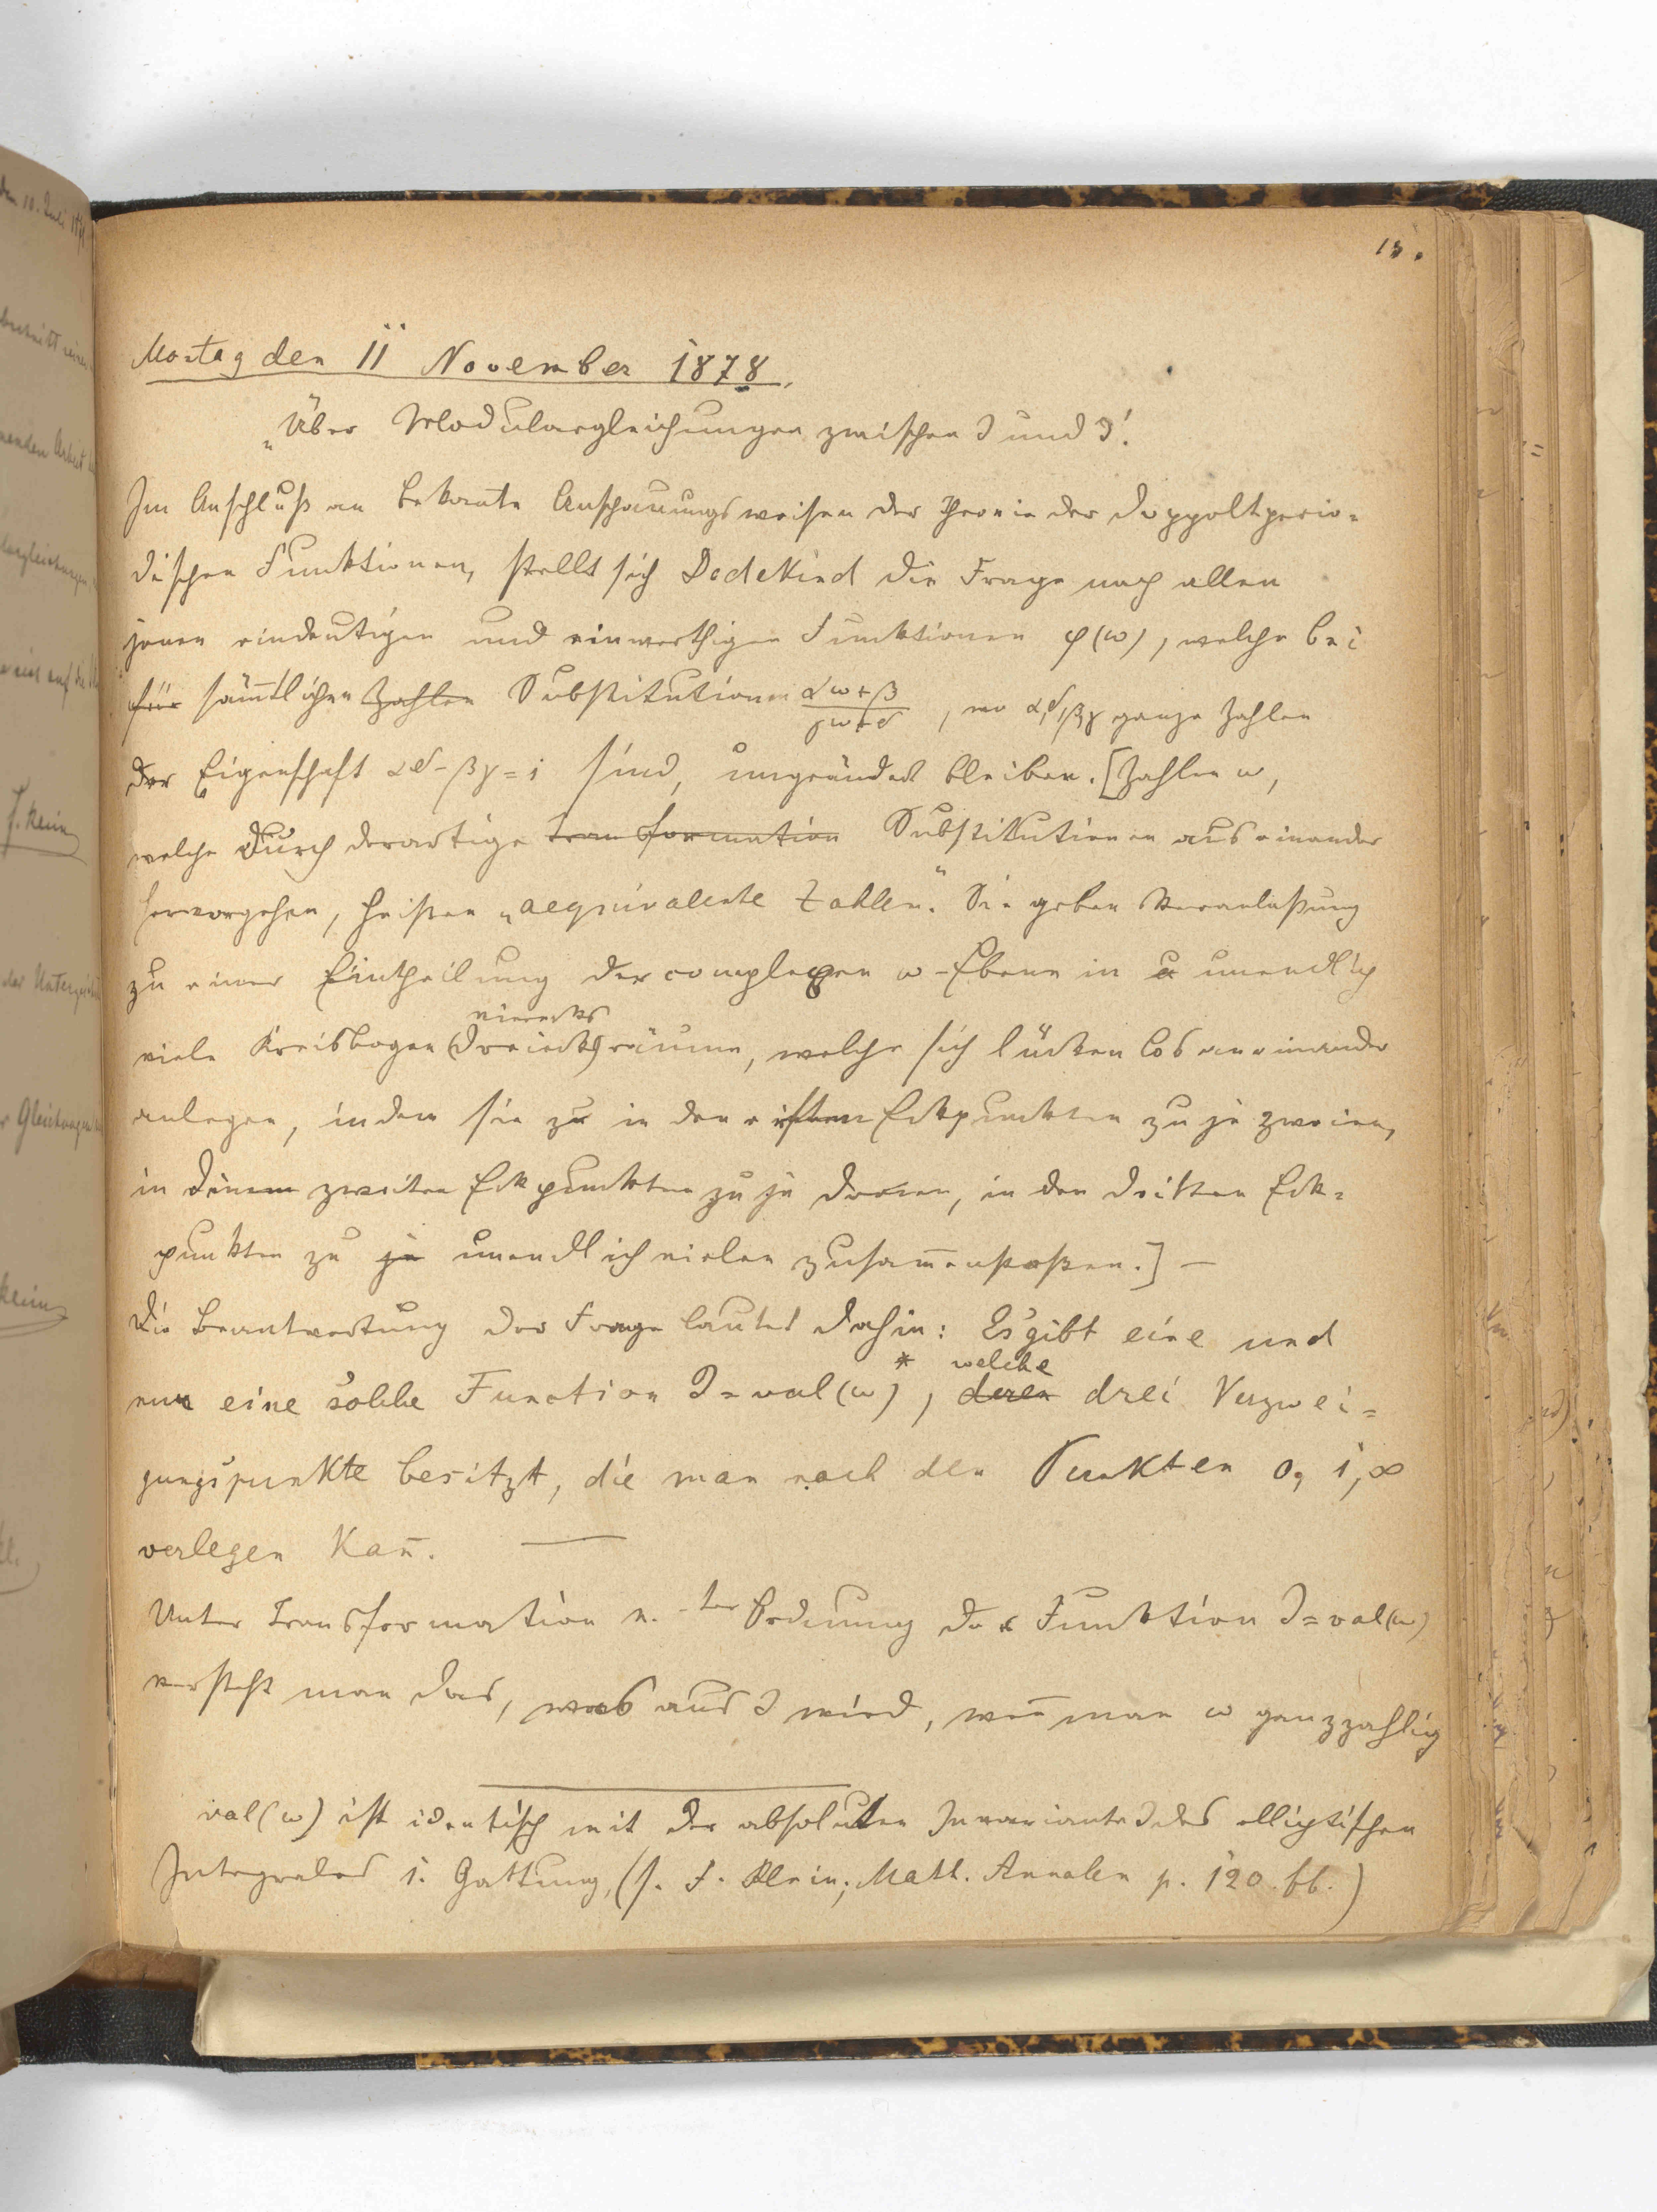 15.
Montag den 11 November 1878.
„Über Modulargleichungen zwischen J und J'.
Im Anschluß an bekannte Anschauungsweisen der Theorie der doppeltperio=
dischen Funktionen, stellt sich Dedekind die Frage nach allen
jenen eindeutigen und einwerthigen Funktionen φ(ω), welche bei
für säm̄tlichen Zahlen Substitutionen (αω+β)/(γω+δ), wo α,δ,β,γ ganze Zahlen
der Eigenschaft αδ-βγ=1 sind, ungeändert bleiben. [Zahlen ω,
welche durch derartige transformation Substitutionen auseinander
hervorgehen, heißen „aequivalente Zahlen." Sie geben Veranlaßung
zu einer Eintheilung der complexen ω-Ebene in unendlich
vierecks
viele Kreisbogen(dreiecks)räume, welche sich lückenlos aneinander
anlegen, indem sie zu in den ersten Eckpunkten zu je zweien,
in den zweiten Eckpunkten zu je dreien, in den dritten Eck=
punkten zu je unendlich vielen zusam̄enstoßen.] —
Die Beantwortung der Frage lautet dahin: Es gibt eine und
* welche
nur eine solche Function J=val(ω), deren drei Verzwei=
gungspunkte besitzt, die man nach den Punkten 0, 1, ∞
verlegen kan̄. —
Unter Transformation n.-ter Ordnung der Funktion J=val(ω)
versteht man das, was aus J wird, wen̄ man ω ganzzahlig
val(ω) ist identisch mit der absoluten Invariante J des elliptischen
Integrales 1. Gattung, (s. F. Klein; Math. Annalen p. 120. ff.)
den 10. Juli
F. Klein
Klein